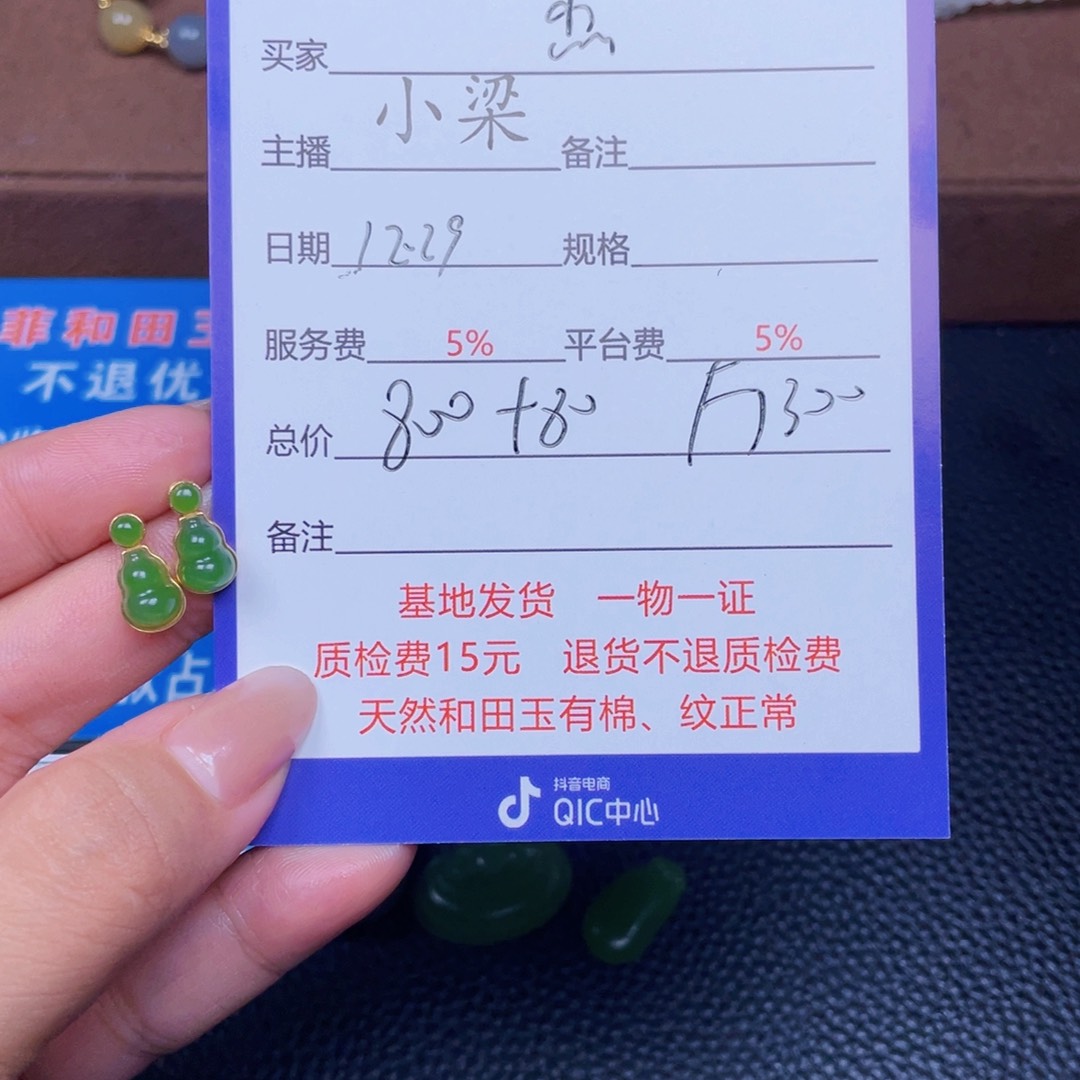 买家
主播 小梁 备注
日期 12-29 规格
服务费 5% 平台费 5%
总价 800+80 
备注
基地发货 一物一证
质检费15元 退货不退质检费
天然和田玉有棉、纹正常
抖音电商
QIC中心
菲和田玉
不退优